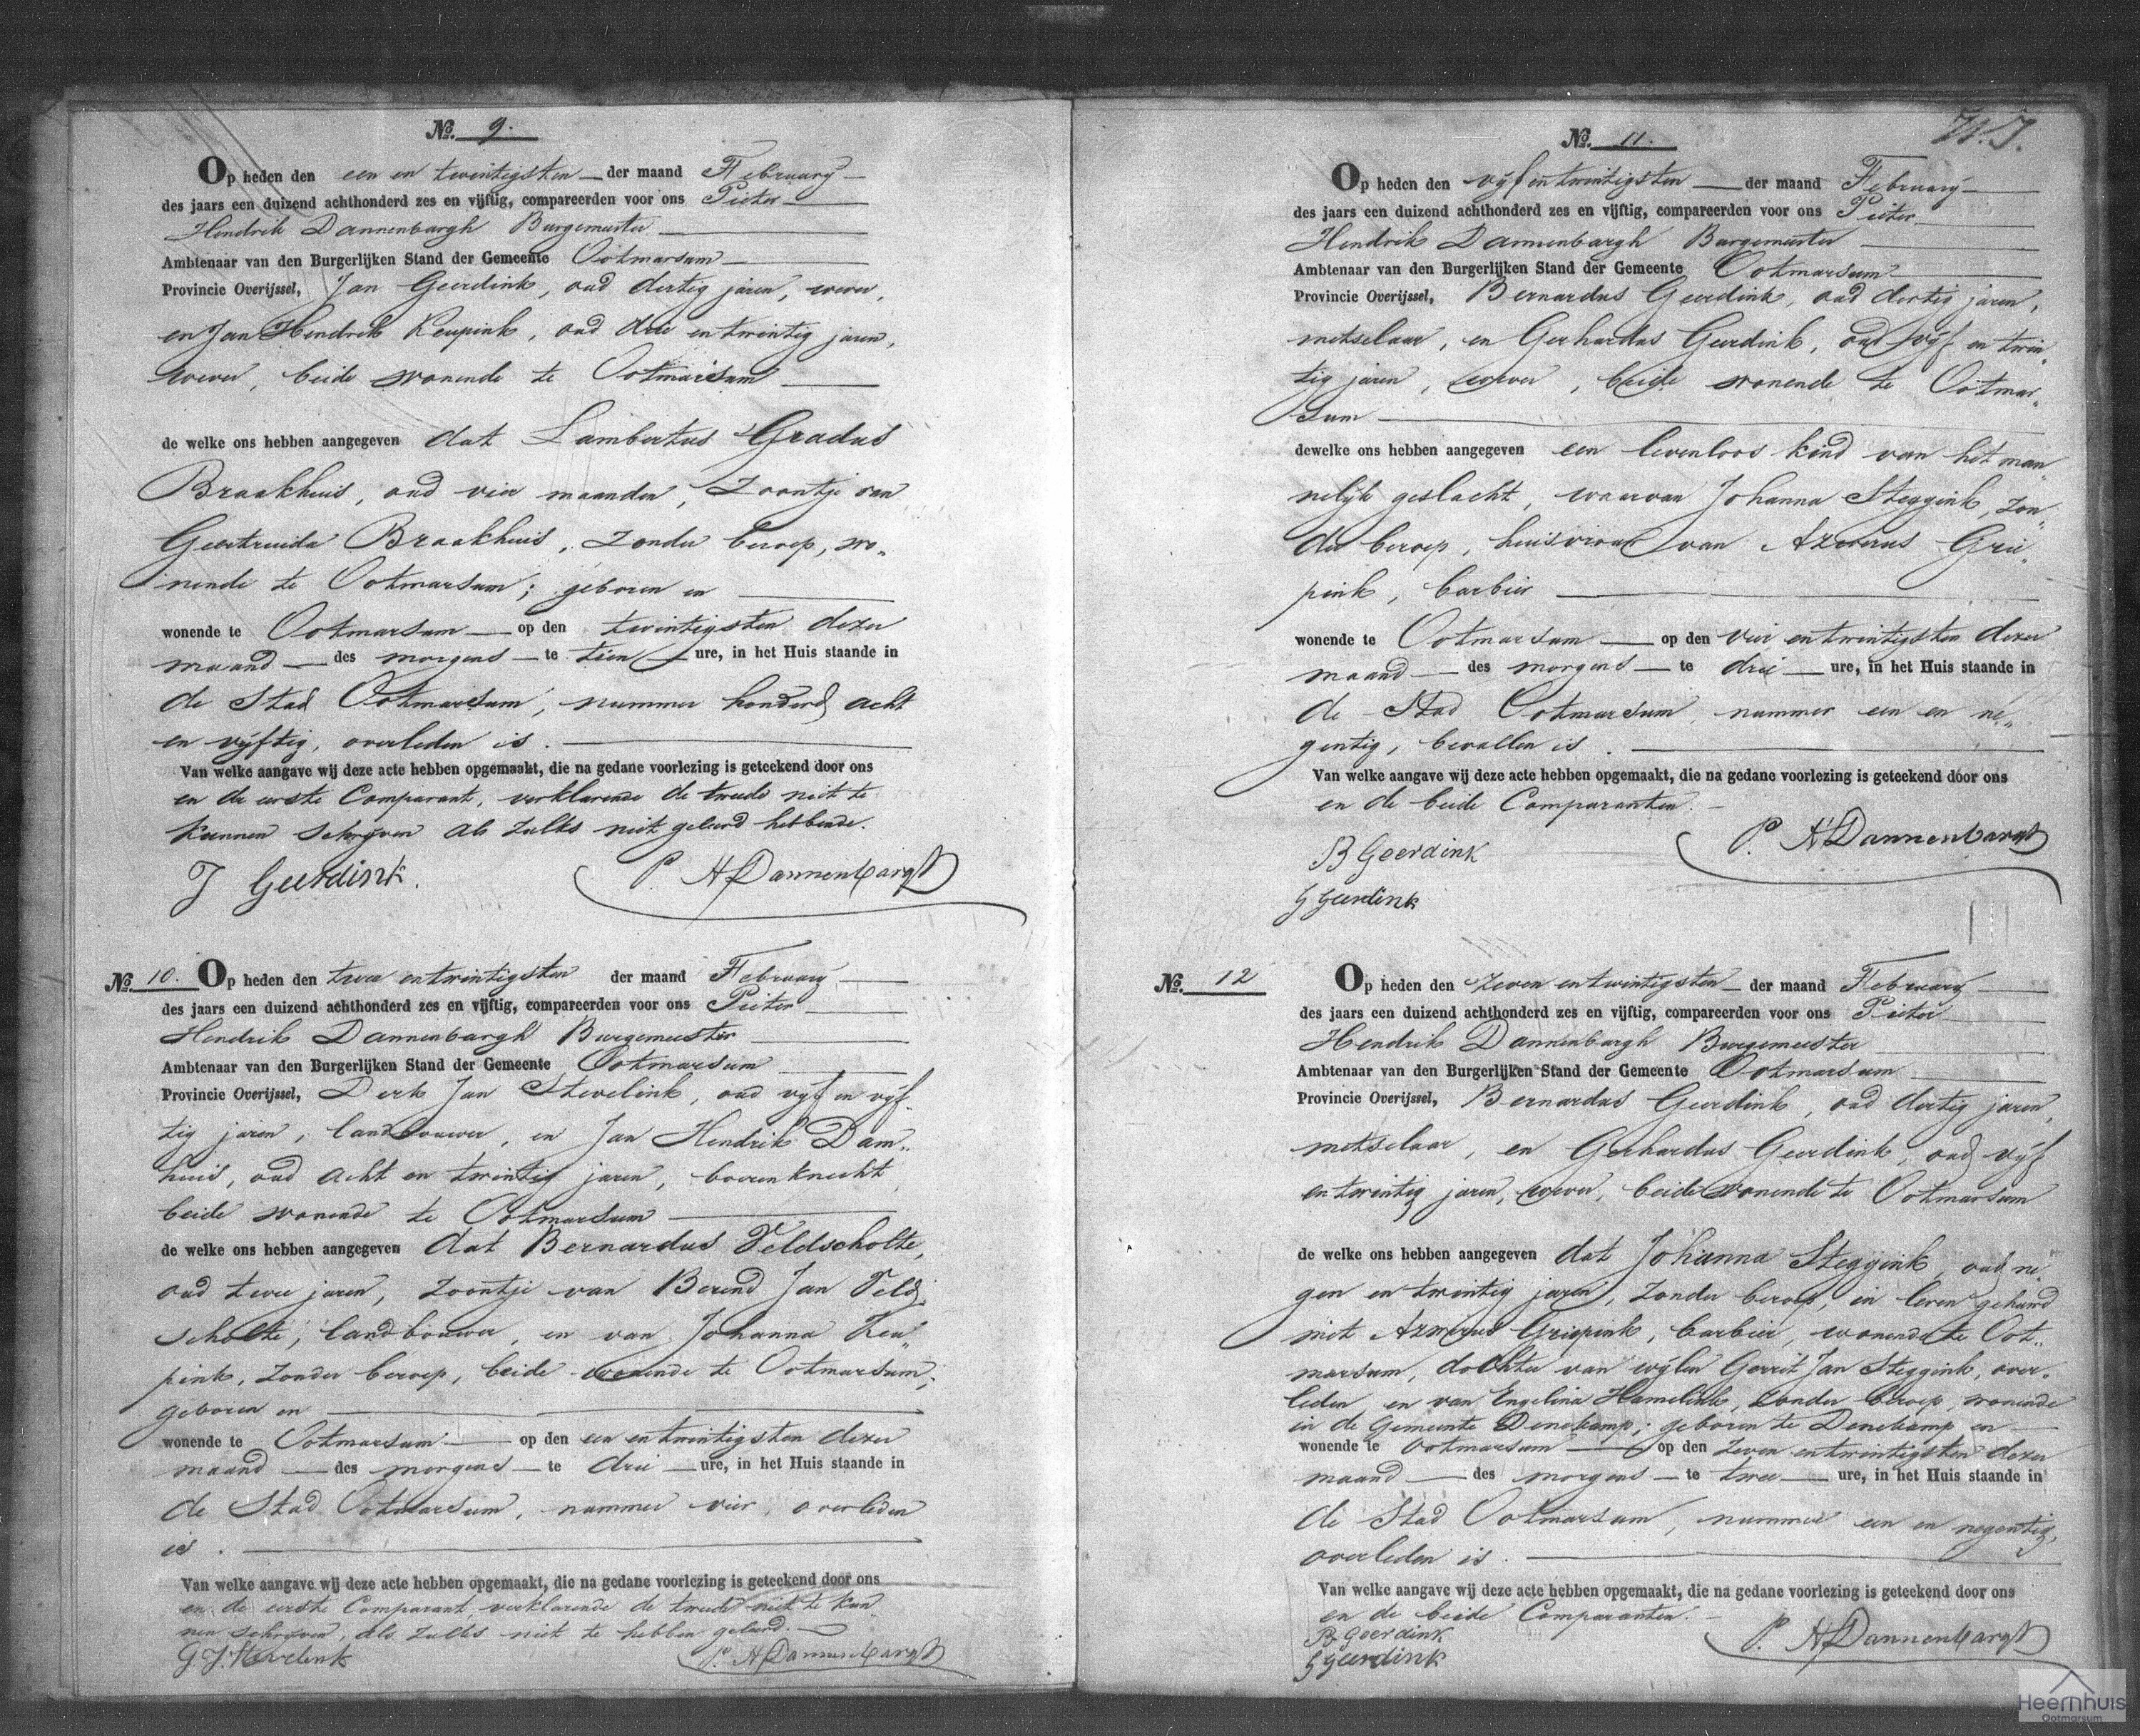 No. 9.
Op heden den een en twintigsten der maand February
des jaars een duizend achthonderd zes en vijftig, compareerden voor ons Pieter
Hendrik Dannenbargh Burgemeester
Ambtenaar van den Burgerlijken Stand der Gemeente Ootmarsum
Provincie Overijssel, Jan Geerdink, oud dertig jaren, wever,
en Jan Hendrik Keupink, oud drie en twintig jaren,
wever, beide wonende te Ootmarsum
de welke ons hebben aangegeven dat Lambertus Gradus
Braakhuis, oud vier maanden, zoontje van
Geertruida Braakhuis, zonder beroep, wo„
nende te Ootmarsum; geboren en
wonende te Ootmarsum op den twintigsten dezer
maand des morgens te tien ure, in het Huis staande in
de Stad Ootmarsum, nummer honderd acht
en vijftig, overleden is.
Van welke aangave wij deze acte hebben opgemaakt, die na gedane voorlezing is geteekend door ons
en de eerste Comparant, verklarende de tweede niet te
kunnen schrijven als zulks niet geleerd hebbende.
J Geerdink.
P. H Dannenbargh
No. 10. Op heden den twee en twintigsten der maand February
des jaars een duizend achthonderd zes en vijftig, compareerden voor ons Pieter
Hendrik Dannenbargh Burgemeester
Ambtenaar van den Burgerlijken Stand der Gemeente Ootmarsum
Provincie Overijssel, Derk Jan Stevelink, oud vijf en vijf„
tig jaren, landbouwer, en Jan Hendrik Dam„
huis, oud acht en twintig jaren, boerenknecht,
beide wonende te Ootmarsum
de welke ons hebben aangegeven dat Bernardus Veldscholte,
oud twee jaren, zoontje van Berend Jan Veld„
scholte, landbouwer, en van Johanna Keu„
pink, zonder beroep, beide wonende te Ootmarsum;
geboren en
wonende te Ootmarsum op den een en twintigsten dezer
maand des morgens te drie ure, in het Huis staande in
de Stad Ootmarsum, nummer vier, overleden
is.
Van welke aangave wij deze acte hebben opgemaakt, die na gedane voorlezing is geteekend door ons
en de eerste Comparant, verklarende de tweede niet te kun„
nen schrijven, als zulks niet te hebben geleerd.
G. J. Stevelink
P. H Dannenbargh
No. 11.
Op heden den vijf en twintigsten der maand February
des jaars een duizend achthonderd zes en vijftig, compareerden voor ons Pieter
Hendrik Dannenbargh Burgemeester
Ambtenaar van den Burgerlijken Stand der Gemeente Ootmarsum
Provincie Overijssel, Bernardus Geerdink, oud dertig jaren,
metselaar, en Gerhardus Geerdink, oud vijf en twin„
tig jaren, wever, beide wonende te Ootmar„
sum
dewelke ons hebben aangegeven een levenloos kind van het man„
nelijk geslacht, waarvan Johanna Steggink, zon„
der beroep, huisvrouw van Azwerus Grie„
pink, barbier
wonende te Ootmarsum op den vier en twintigsten dezer
maand des morgens te drie ure, in het Huis staande in
de Stad Ootmarsum, nummer een en ne„
gentig, bevallen is.
Van welke aangave wij deze acte hebben opgemaakt, die na gedane voorlezing is geteekend door ons
en de beide Comparanten.
P. H Dannenbargh
B Geerdink
G Geerdink
No. 12
Op heden den zeven en twintigsten der maand February
des jaars een duizend achthonderd zes en vijftig, compareerden voor ons Pieter
Hendrik Dannenbargh Burgemeester
Ambtenaar van den Burgerlijken Stand der Gemeente Ootmarsum
Provincie Overijssel, Bernardus Geerdink, oud dertig jaren,
metselaar, en Gerhardus Geerdink, oud vijf
en twintig jaren, wever, beide wonende te Ootmarsum
de welke ons hebben aangegeven dat Johanna Steggink, oud ne„
gen en twintig jaren, zonder beroep, in leven gehuwd
met Azwerus Griepink, barbier, wonende te Oot„
marsum, dochter van wijlen Gerrit Jan Steggink, over„
leden en van Engelina Hamelink, zonder beroep, wonende
in de Gemeente Denekamp; geboren te Denekamp en
wonende te Ootmarsum op den zeven en twintigsten dezer
maand des morgens te twee ure, in het Huis staande in
de Stad Ootmarsum, nummer een en negentig,
overleden is.
Van welke aangave wij deze acte hebben opgemaakt, die na gedane voorlezing is geteekend door ons
en de beide Comparanten.
B Geerdink
G Geerdink
P. H Dannenbargh
Heernhuis
Ootmarsum